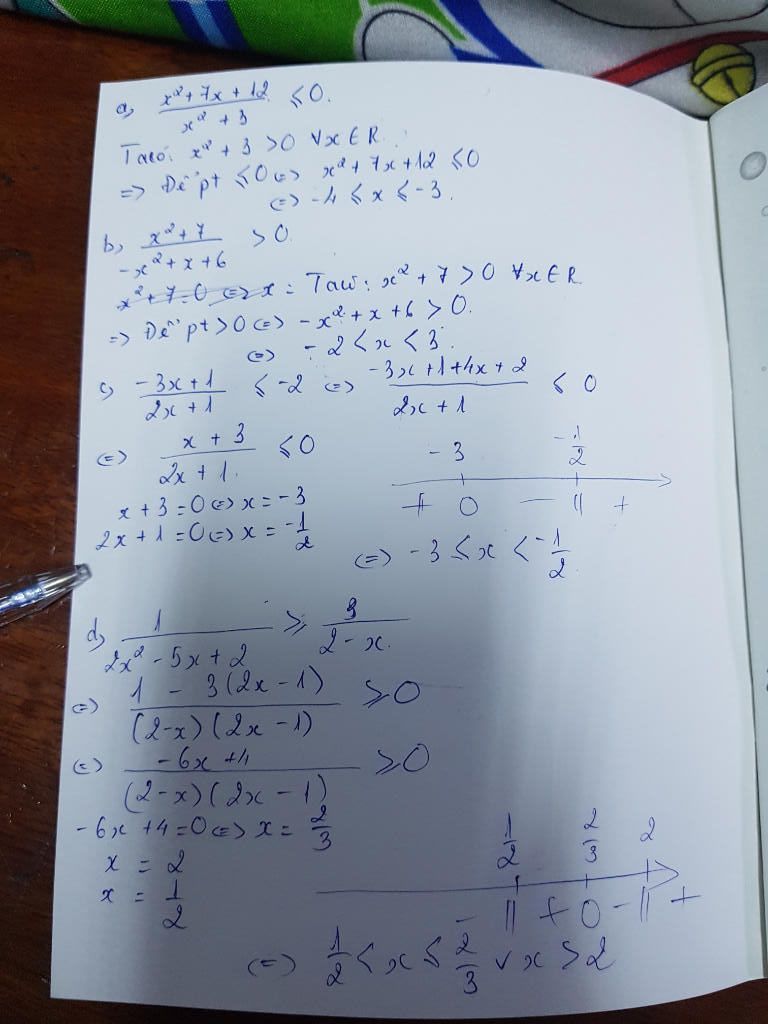 a, (x² + 7x + 12)/(x² + 3) ⩽ 0.
Ta có: x² + 3 > 0 ∀x ∈ R.
=> Để pt ⩽ 0 <=> x² + 7x + 12 ⩽ 0
<=> -4 ⩽ x ⩽ -3.
b, (x² + 7)/(-x² + x + 6) > 0.
x² + 7 = 0 <=> x = Ta có: x² + 7 > 0 ∀x ∈ R
=> Để pt > 0 <=> -x² + x + 6 > 0.
<=> -2 < x < 3.
c, (-3x + 1)/(2x + 1) ⩽ -2 <=> (-3x + 1 + 4x + 2)/(2x + 1) ⩽ 0
<=> (x + 3)/(2x + 1) ⩽ 0
-3 -1/2
+ 0 - || +
x + 3 = 0 <=> x = -3
2x + 1 = 0 <=> x = -1/2
<=> -3 ⩽ x < -1/2
d, 1/(2x² - 5x + 2) ⩾ 3/(2 - x)
<=> (1 - 3(2x - 1))/((2-x)(2x - 1)) ⩾ 0
<=> (-6x + 4)/((2-x)(2x - 1)) ⩾ 0
-6x + 4 = 0 <=> x = 2/3
x = 2
x = 1/2
1/2 2/3 2
- || + 0 - || +
<=> 1/2 < x ⩽ 2/3 ∨ x > 2